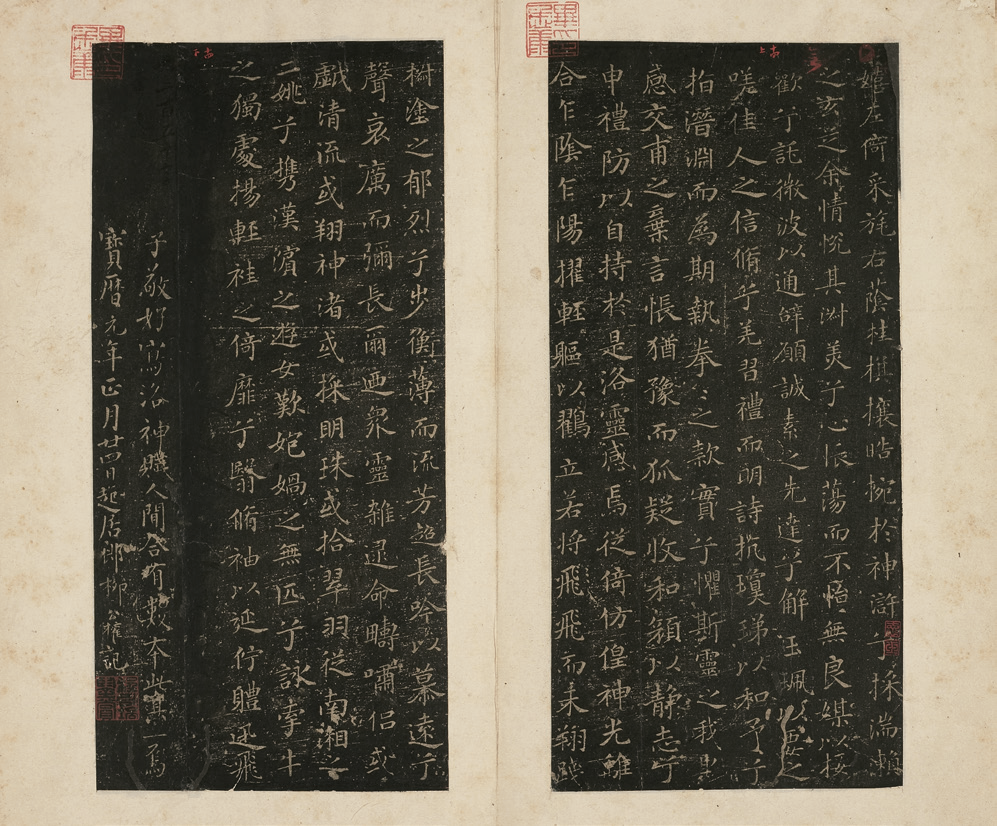 嬉左倚采旄右蔭桂棋攘皓捥於神滸兮採湍瀨
之玄芝余情悅其淑美兮心振蕩而不怡無良媒以接
歡兮託微波以通辝願誠素之先達兮解玉珮以要之
嗟佳人之信脩兮羌習禮而明詩抗瓊珶以和予兮
指潛淵而為期執拳〻之款實兮懼斯靈之我
感交甫之棄言悵猶豫而狐疑收和顏以靜志兮
申禮防以自持於是洛靈感焉徙倚仿偟神光離
合乍陰乍陽擢輕軀以鶴立若將飛飛而未翔踐
椒塗之郁烈兮步衡薄而流芳超長吟以慕遠兮
聲哀厲而彌長爾迺衆靈雜遝命疇嘯侶或
戲清流或翔神渚或採明珠或拾翠羽從南湘之
二姚兮攜漢濱之遊女歎匏媧之無匹兮詠牽牛
之獨處揚輕袿之倚靡兮翳脩袖以延佇體迅飛
子敬好寫洛神賦人間合有數本此其一焉
寶曆元年正月廿四日起居郎柳公權記